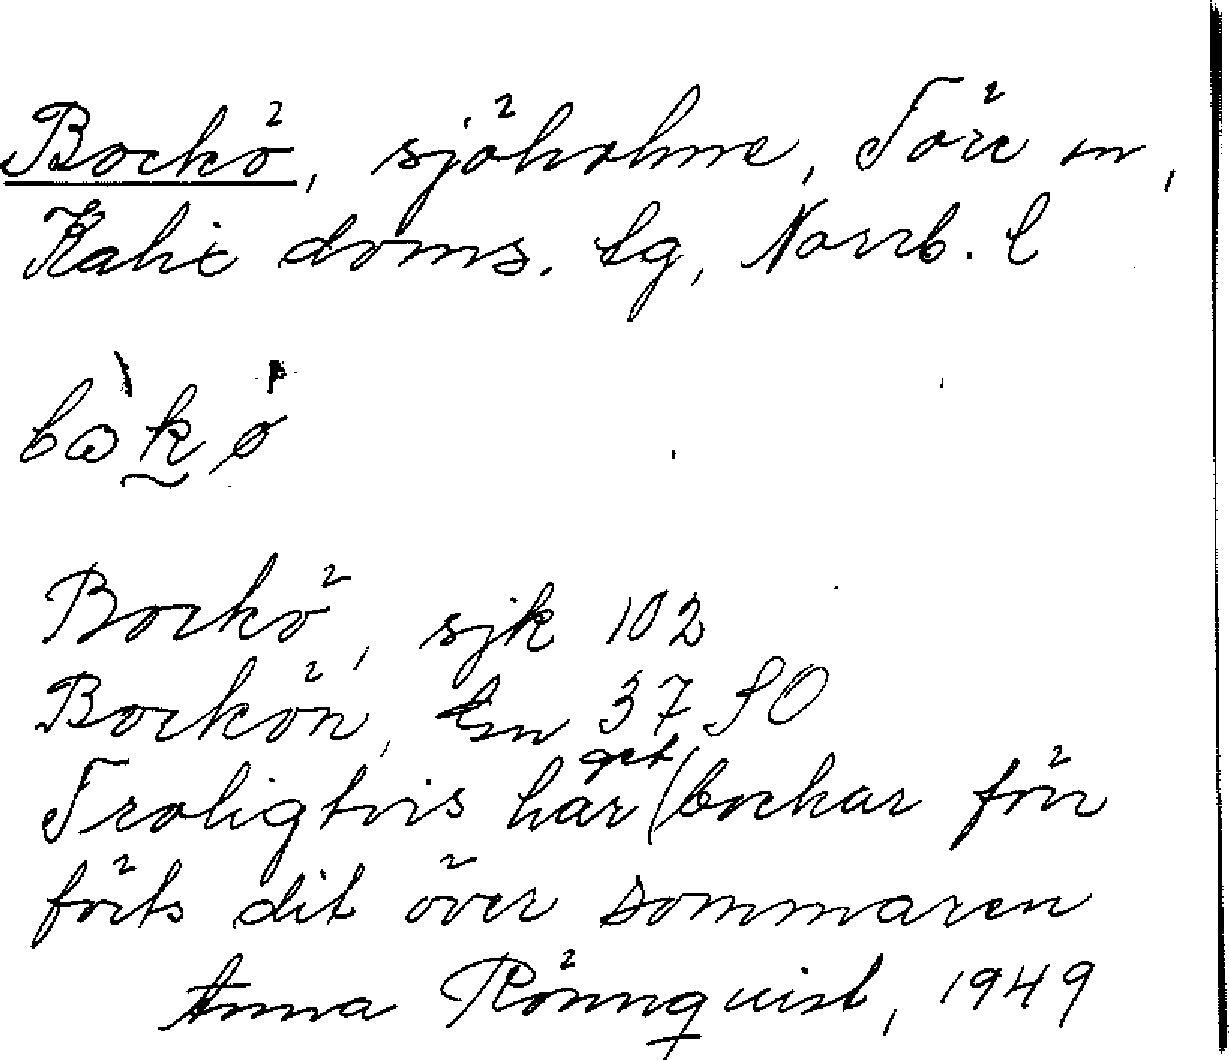 Bockö, sjöholme, Töre sn,
Kalix doms. lg, Norrb. l
Bockö, sjk 102
Bockön, En 37 SO
Troligtvis har getbockar förr
förts dit över sommaren
Anna Rönnquist, 1949